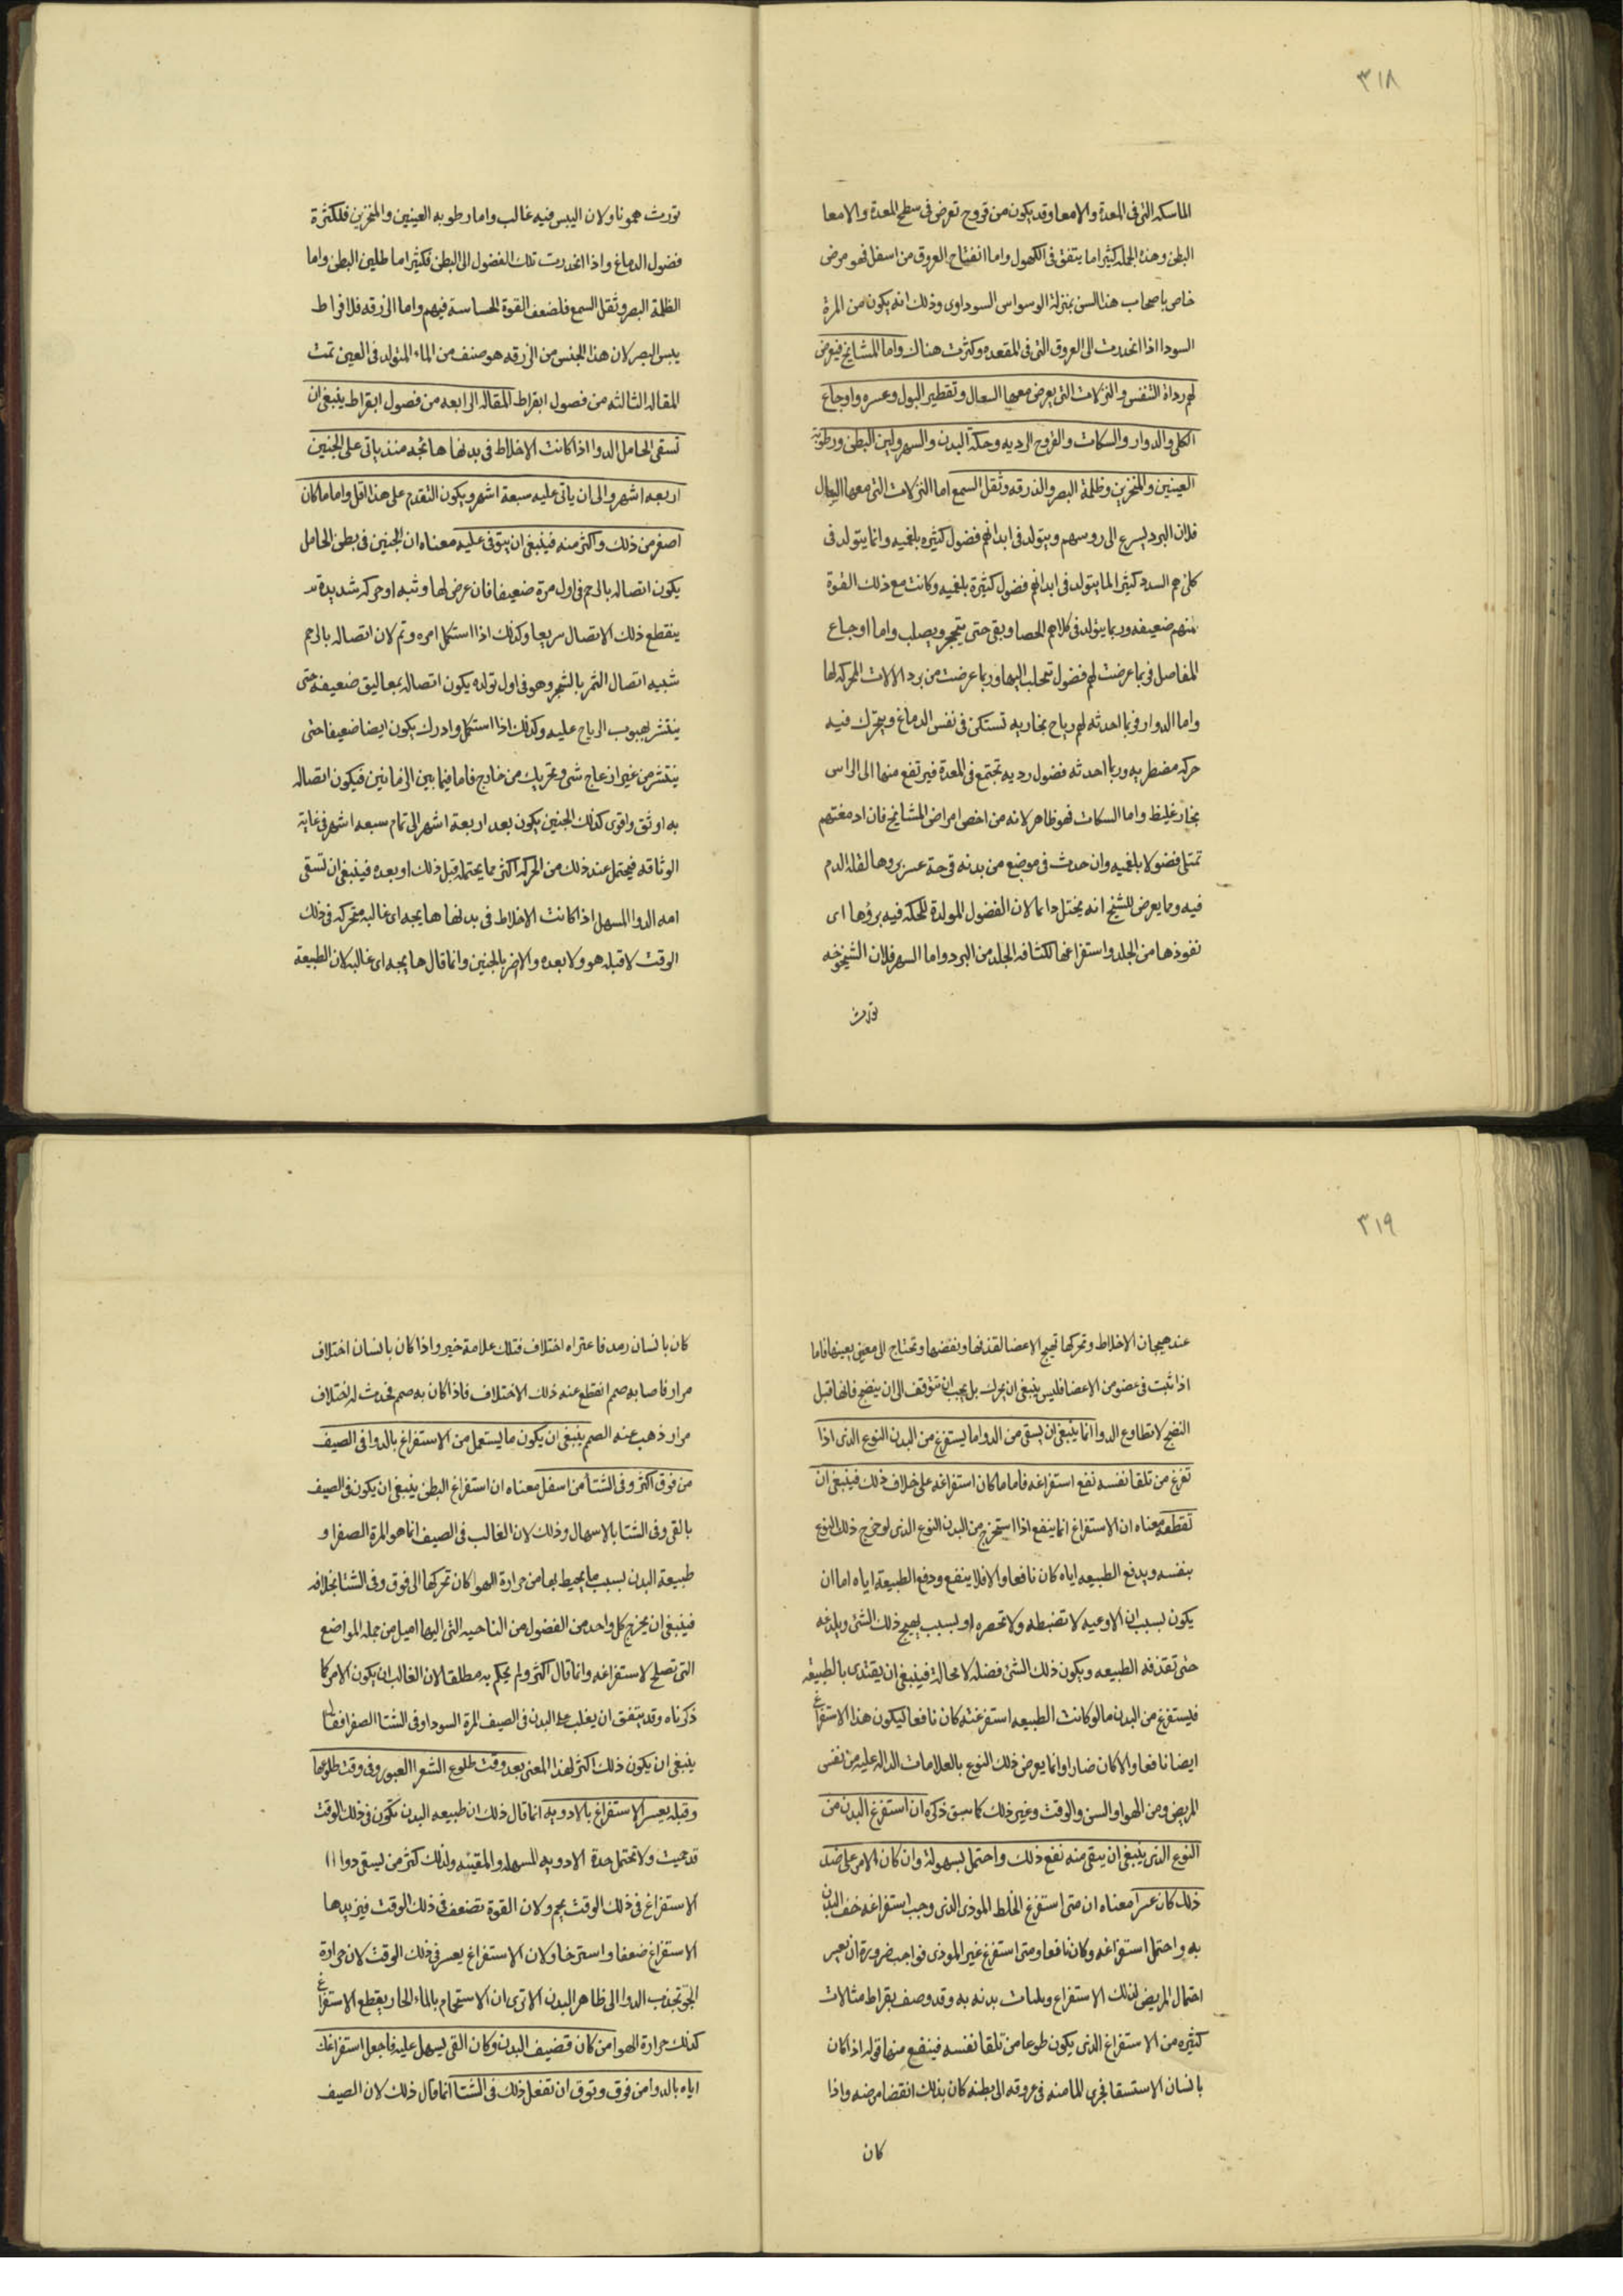 ٣١٨
الماسكه التى فى المعدة والامعا وقد يكون من قروح تعرض فى سطح المعدة والامعا
البطن وهذه الجمله كثيرا ما يتفق فى الكهول واما انفتاح العروق من اسفل فهو مرض
خاص باصحاب هذا السن بمنزلة الوسواس السوداوى وذلك انه يكون من المرة
السودا اذا انحدرت الى العروق التى فى المقعده وكثرت هناك واما المشايخ فيعرض
لهم رداة التنفس والنزلات التى يعرض معها السعال وتقطير البول وعسره واوجاع
الكلى والدوار والسكات والقروح الرديه وحكة البدن والسهر ولين البطن ورطوبة
العينين والمنخرين وظلمة البصر والذرقه وثقل السمع اما النزلات التى معها السعال
فلان البرد يسرع الى روسهم ويتولد فى ابدانهم فضول كثيره بلغميه وانما يتولد فى
كلاهم السدد كثيرا لما يتولد فى ابدانهم فضول كثيرة بلغميه وكانت مع ذلك القوة
منهم ضعيفه وربما يتولد فى كلاهم الحصا وبقى حتى يتحجر ويصلب واما اوجاع
المفاصل فربما عرضت لهم فضول تتحلب اليها وربما عرضت من برد الالات المحركه لها
واما الدوار فربما احدثه لهم رياح بخاريه تستكن فى نفس الدماغ ويتحرك فيه
حركه مضطربه وربما احدثه فضول رديه تجتمع فى المعدة فيرتفع منها الى الراس
بخار غليظ واما السكات فهو ظاهر لانه من اخص امراض المشايخ فان ادمغتهم
تمتلى فضولا بلغميه وان حدث فى موضع من بدنه قرحة عسر بروها لقلة الدم
فيه ومما يعرض للشيخ انه يحتك دايما لان الفضول المولدة للحكه فيه بروها اى
نفوذها من الجلد واستفراغها لكثافه الجلد من البرد واما السهر فلان الشيخوخه
تورث
تورث هموما ولان اليبس فيه غالب واما رطوبه العينين والمنخرين فلكثرة
فضول الدماغ واذا انحدرت تلك الفضول الى البطن فكثيرا ما طلين البطن واما
الظلمة البصر وثقل السمع فلضعف القوة الحساسة فيهم واما الزرقه فلافراط
يبس البصر لان هذا الجنس من الزرقه هو صنف من الماء المتولد فى العين تمت
المقاله الثالثه من فصول ابقراط المقاله الرابعه من فصول ابقراط ينبغى ان
تسقى الحامل الدوا اذا كانت الاخلاط فى بدنها هايجه منذ ياتى على الجنين
اربعه اشهر والى ان ياتى عليه سبعة اشهر ويكون التقدم على هذا اقل واما ما كان
اصغر من ذلك واكثر منه فينبغى ان يتوقى عليه معناه ان الجنين فى بطن الحامل
يكون اتصاله بالرحم فى اول مرة ضعيفا فان عرض لها وثبه او حركه شديدة
ينقطع ذلك الاتصال سريعا وكذلك اذا استكمل امره وتم لان اتصاله بالرحم
شبيه اتصال الثمر بالشجر وهو فى اول تولده يكون اتصاله بمعاليق ضعيفة حتى
ينتثر بهبوب الرياح عليه وكذلك اذا استكمل وادرك يكون ايضا ضعيفا حتى
ينتثر من غير ازعاج شى وتحريك من خارج فاما فيما بين الزمانين فيكون اتصاله
به اوثق واقوى كذلك الجنين يكون بعد اربعة اشهر الى تمام سبعه اشهر فى غاية
الوثاقه فيحتمل عند ذلك من الحركه اكثر مما يحتمله قبل ذلك او بعده فينبغى ان تسقى
امه الدوا المسهل اذا كانت الاخلاط فى بدنها هايجه اى غالبه متحركه فى ذلك
الوقت لا قبله هو ولا بعده والا ضر بالجنين وانما قال هايجه اى غالبه لان الطبيعة
٣١٩
عند هيجان الاخلاط وتحركها تهيج الاعضا لقذفها ونفضها وتحتاج الى معين يعينها فاما
اذا ثبت فى عضو من الاعضا فليس ينبغى ان يحرك بل يجب ان تتوقف الى ان ينضج فانها قبل
النضج لا تطاوع الدوا انما ينبغى ان يسقى من الدوا ما يستفرغ من البدن النوع الذى اذا
تفرغ من تلقا نفسه نفع استفراغه فاما ما كان استفراغه على خلاف ذلك فينبغى ان
تقطعه معناه ان الاستفراغ انما ينفع اذا استخرج من البدن النوع الذى لو خرج ذلك النوع
بنفسه ويدفع الطبيعه اياه كان نافعا والا فلا ينفع ودفع الطبيعة اياه اما ان
يكون بسبب ان الاوعيه لا تضبطه ولا تحصره او بسبب يهيج ذلك الشى ويلدغه
حتى تقذفه الطبيعه ويكون ذلك الشى فضله لا محالة فينبغى ان يقتدى بالطبيعه
فليستفرغ من البدن ما لو كانت الطبيعه استفرغته كان نافعا ليكون هذا الاستفراغ
ايضا نافعا والا كان ضارا وانما يعرض ذلك النوع بالعلامات الداله عليه من نفس
المريض ومن الهوا والسن والوقت وغير ذلك كما سبق ذكره ان استفرغ البدن من
النوع الذى ينبغى ان ينقى منه نفع ذلك واحتمل بسهولة وان كان الامر على ضد
ذلك كان عسرا معناه ان متى استفرغ الخلط الموذى الذى وجب استفراغه خف البدن
به واحتمل استفراغه وكان نافعا ومتى استفرغ غير الموذى فواجب ضرورة ان يعسر
احتمال المريض لذلك الاستفراغ وبلبات بدنه به وقد وصف بقراط مثالات
كثيره من الاستفراغ الذى يكون طوعا من تلقا نفسه فينفع منها قوله اذا كان
بانسان الاستسقا فجرى الما منه فى عروقه الى بطنه كان بذلك انقضا مرضه واذا
كان
كان بانسان رمد فاعتراه اختلاف فتلك علامة خير واذا كان بانسان اختلاف
مرار فاصابه صمم انقطع عنه ذلك الاختلاف فاذا كان به صمم فحدث له اختلاف
مرار ذهب عنه الصمم ينبغى ان يكون ما يستعمل من الاستفراغ بالدوا فى الصيف
من فوق اكثر وفى الشتا من اسفل معناه ان استفراغ البطن ينبغى ان يكون فى الصيف
بالقى وفى الشتا بالاسهال وذلك لان الغالب فى الصيف انما هو المرة الصفرا و
طبيعة البدن بسبب ما يحيط بها من حرارة الهوا كان تحركها الى فوق وفى الشتا بخلافه
فينبغى ان يخرج كل واحد من الفضول من الناحيه التى اليها اميل من جمله المواضع
التى تصلح لاستفراغه وانما قال اكثر ولم يحكم به مطلقا لان الغالب ان يكون الامر كما
ذكرناه وقد يتفق ان يغلب على البدن فى الصيف المرة السودا وفى الشتا الصفرا فقط
ينبغى ان يكون ذلك اكثر لهذا المعنى بعد وقت طلوع الشعرا العبور وفى وقت طلوعها
وقبله يعسر الاستفراغ بالادويه انما قال ذلك ان طبيعه البدن تكون فى ذلك الوقت
قد حميت ولا تحتمل حدة الادويه المسهله والمقيئه ولذلك كثر من يسقى دوا
الاستفراغ فى ذلك الوقت يحم ولان القوة تضعف فى ذلك الوقت فيزيدها
الاستفراغ ضعفا واسترخا ولان الاستفراغ يعسر فى ذلك الوقت لان حرارة
الجو تجذب الدوا الى ظاهر البدن الا ترى ان الاستحمام بالماء الحار يقطع الاستفراغ
كذلك حرارة الهوا من كان قضيف البدن وكان القى يسهل عليه فاجعل استفراغك
اياه بالدوا من فوق وتوق ان تفعل ذلك فى الشتا انما قال ذلك لان الصيف